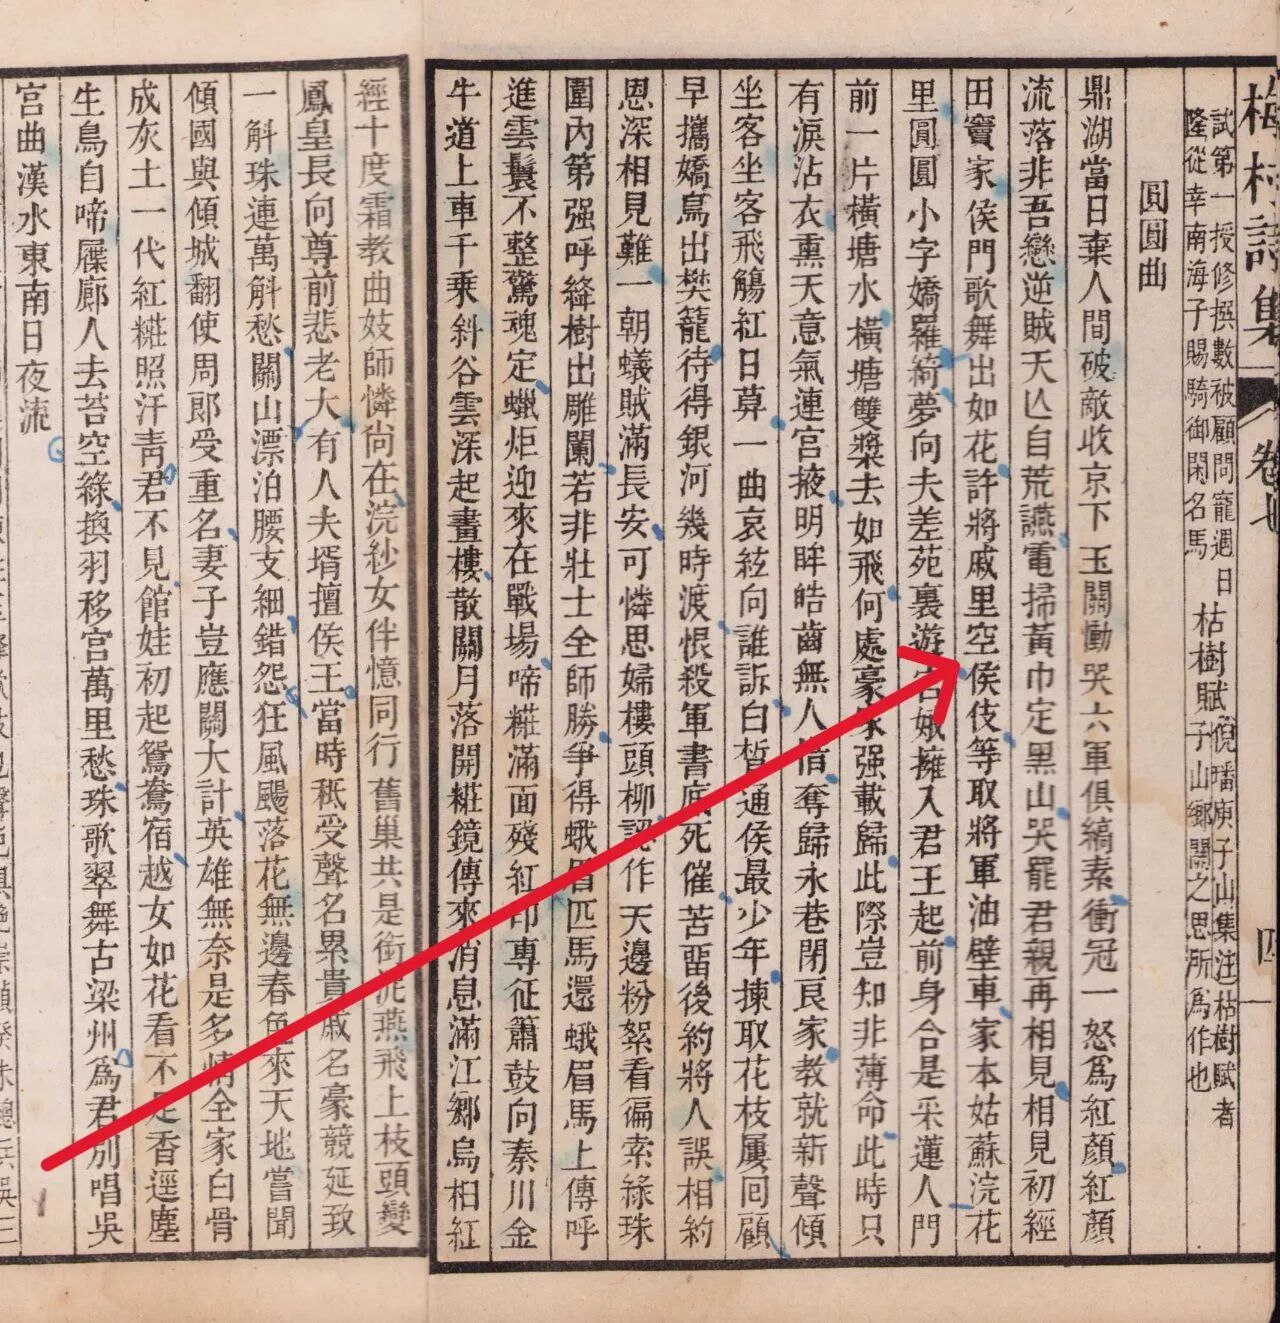 梅村詩集 卷七 四
試第一授修撰數被顧問寵遇日
隆從幸南海子賜騎御閑名馬
枯樹賦
倪璠庾子山集注枯樹賦者
子山鄉關之思所爲作也
圓圓曲
鼎湖當日棄人間破敵收京下玉關慟哭六軍俱縞素衝冠一怒爲紅顏紅顏
流落非吾戀逆賊天亾自荒讌電掃黃巾定黑山哭罷君親再相見相見初經
田竇家侯門歌舞出如花許將戚里空侯伎等取將軍油壁車家本姑蘇浣花
里圓圓小字嬌羅綺夢向夫差苑裏遊宮娥擁入君王起前身合是采蓮人門
前一片橫塘水橫塘雙槳去如飛何處豪家强載歸此際豈知非薄命此時只
有淚沾衣熏天意氣連宮掖明眸皓齒無人惜奪歸永巷閉良家教就新聲傾
坐客坐客飛觴紅日暮一曲哀絃向誰訴白皙通侯最少年揀取花枝屢回顧
早攜嬌鳥出樊籠待得銀河幾時渡恨殺軍書底死催苦畱後約將人誤相約
恩深相見難一朝蟻賊滿長安可憐思婦樓頭柳認作天邊粉絮看徧索綠珠
圍內第强呼絳樹出雕闌若非壯士全師勝爭得蛾眉匹馬還蛾眉馬上傳呼
進雲鬟不整驚魂定蠟炬迎來在戰場啼糚滿面殘紅印專征簫鼓向秦川金
牛道上車千乘斜谷雲深起畫樓散關月落開糚鏡傳來消息滿江鄉烏桕紅
經十度霜教曲妓師憐尚在浣紗女伴憶同行舊巢共是銜泥燕飛上枝頭變
鳳皇長向尊前悲老大有人夫壻擅侯王當時秪受聲名累貴戚名豪競延致
一斛珠連萬斛愁關山漂泊腰支細錯怨狂風颺落花無邊春色來天地嘗聞
傾國與傾城翻使周郎受重名妻子豈應關大計英雄無奈是多情全家白骨
成灰土一代紅糚照汗青君不見館娃初起鴛鴦宿越女如花看不足香逕塵
生鳥自啼屧廊人去苔空綠換羽移宮萬里愁珠歌翠舞古梁州爲君別唱吳
宮曲漢水東南日夜流